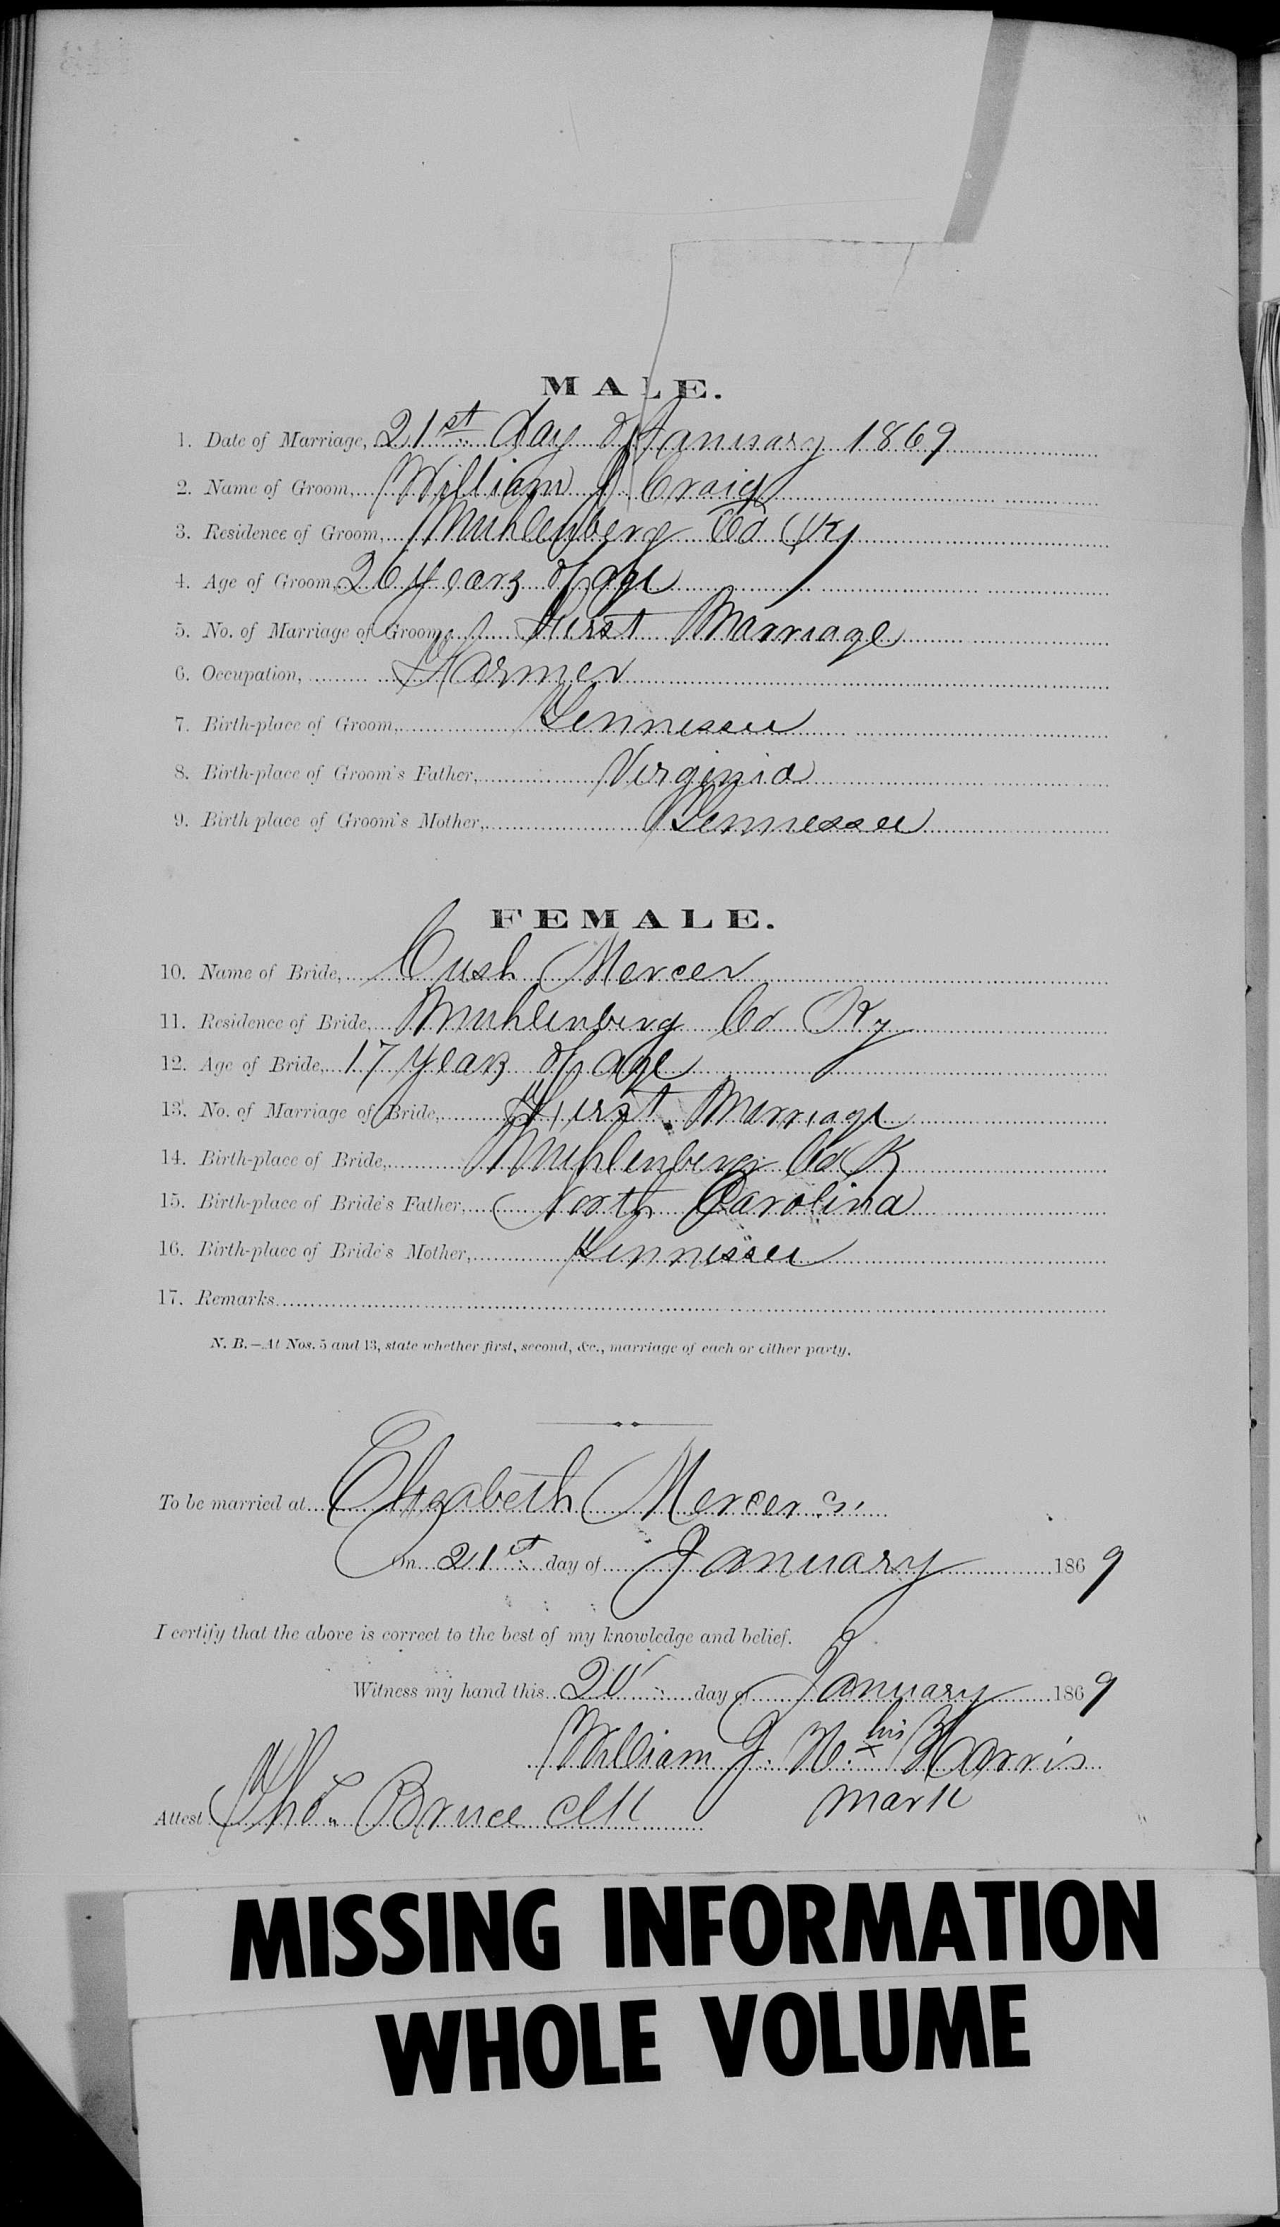 MALE.
1. Date of Marriage, 21st day of January 1869
2. Name of Groom, William J Craig
3. Residence of Groom, Muhlenberg Co Ky
4. Age of Groom, 26 years of age
5. No. of Marriage of Groom, First Marriage
6. Occupation, Farmer
7. Birth-place of Groom, Tennessee
8. Birth-place of Groom's Father, Virginia
9. Birth place of Groom's Mother, Tennessee
FEMALE.
10. Name of Bride, Cush Mercer
11. Residence of Bride, Muhlenberg Co Ky
12. Age of Bride, 17 years of age
13. No. of Marriage of Bride, First Marriage
14. Birth-place of Bride, Muhlenberg Co K
15. Birth-place of Bride's Father, North Carolina
16. Birth-place of Bride's Mother, Tennessee
17. Remarks
N. B.—At Nos. 5 and 13, state whether first, second, &c., marriage of each or either party.
To be married at Elizabeth Mercers
on 21st day of January 1869
I certify that the above is correct to the best of my knowledge and belief.
Witness my hand this 20 day of January 1869
William J. his x Harris
mark
Attest Thos. Bruce clk
MISSING INFORMATION
WHOLE VOLUME